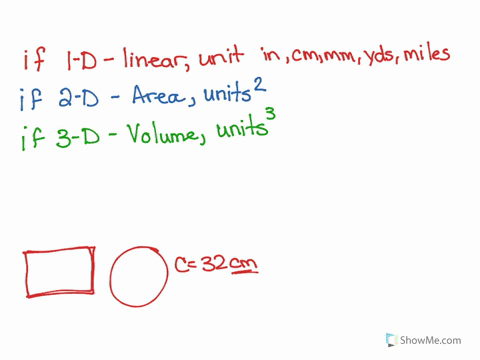 if 1-D - linear, unit in, cm, mm, yds, miles
if 2-D - Area, units²
if 3-D - Volume, units³
C = 32 cm
ShowMe.com